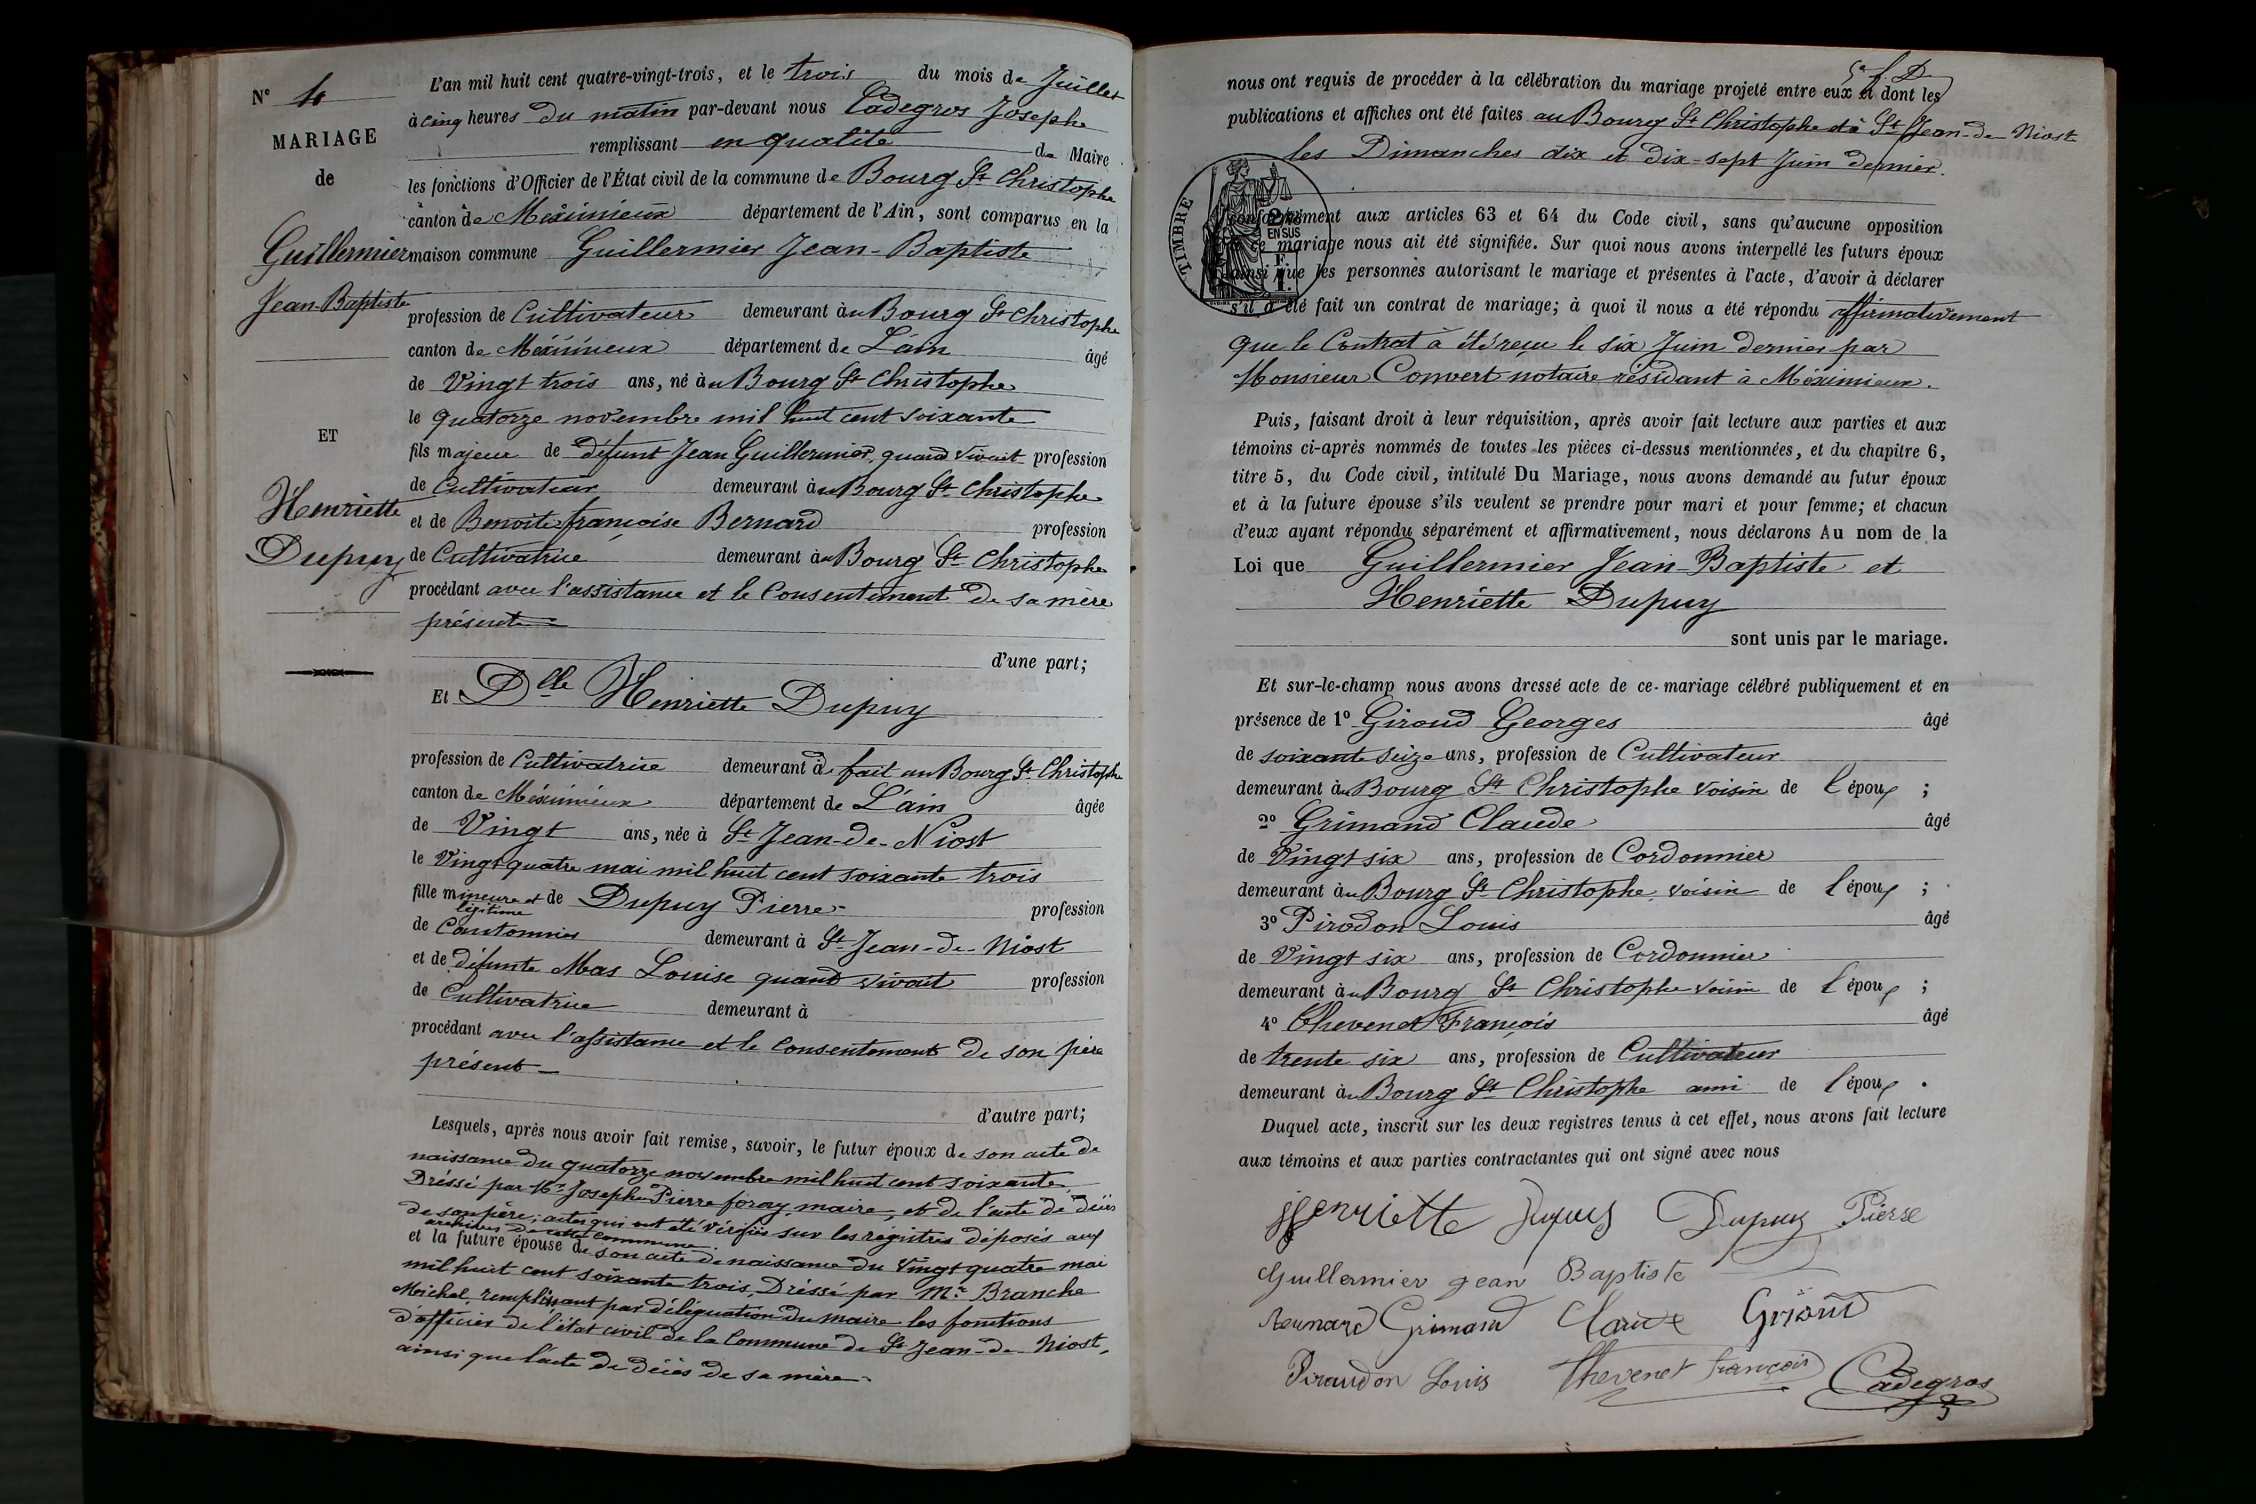 N° 4
MARIAGE
de
Guillermier
Jean-Baptiste
ET
Henriette
Dupuy
L'an mil huit cent quatre-vingt-trois, et le trois du mois de Juillet
à cinq heures du matin par-devant nous Cadegros Joseph
remplissant en qualité de Maire
les fonctions d'Officier de l'État civil de la commune de Bourg St Christophe
canton de Méximieux département de l'Ain, sont comparus en la
maison commune Guillermier Jean-Baptiste
profession de Cultivateur demeurant àu Bourg St Christophe
canton de Méximieux département de L'ain âgé
de Vingt trois ans, né àu Bourg St Christophe
le quatorze novembre mil huit cent soixante
fils majeur de défunt Jean Guillermier, quand vivait profession
de Cultivateur demeurant àu Bourg St Christophe
et de Benoite françoise Bernard profession
de Cultivatrice demeurant àu Bourg St Christophe
procédant avec l'assistance et le Consentement de sa mère
présente
d'une part;
Et Dlle Henriette Dupuy
profession de Cultivatrice demeurant à de fait au Bourg St Christophe
canton de Méximieux département de L'ain âgée
de Vingt ans, née à St Jean-de-Niost
le Vingt quatre mai mil huit cent soixante trois
fille mineure et légitime de Dupuy Pierre profession
de Cantonnier demeurant à St Jean-de-Niost
et de défunte Mas Louise quand vivait profession
de Cultivatrice demeurant à
procédant avec l'assistance et le Consentement de son père
présent
d'autre part;
Lesquels, après nous avoir fait remise, savoir, le futur époux de son acte de
naissance du quatorze novembre mil huit cent soixante
Dréssé par Mr Joseph Pierre foray, maire, et de l'acte de décès
de son père, actes qui ont été vérifiés sur les régistres déposés aux
archives de cette commune.
et la future épouse de son acte de naissance du Vingt quatre mai
mil huit cent soixante trois, Dréssé par Mr Branche
Michel, remplissant par déléguation du maire les fonctions
d'officier de l'état civil de la Commune de St Jean-de-Niost,
ainsi que l'acte de décès de sa mère
nous ont requis de procéder à la célébration du mariage projeté entre eux et dont les
publications et affiches ont été faites au Bourg St Christophe et à St Jean-de-Niost
les Dimanches dix et dix-sept Juin dernier.
TIMBRE
EN SUS
conformément aux articles 63 et 64 du Code civil, sans qu'aucune opposition
à ce mariage nous ait été signifiée. Sur quoi nous avons interpellé les futurs époux
ainsi que les personnes autorisant le mariage et présentes à l'acte, d'avoir à déclarer
s'il a été fait un contrat de mariage; à quoi il nous a été répondu affirmativement
que le Contrat à été reçu le six Juin dernier par
Monsieur Convert notaire résidant à Méximieux.
Puis, faisant droit à leur réquisition, après avoir fait lecture aux parties et aux
témoins ci-après nommés de toutes les pièces ci-dessus mentionnées, et du chapitre 6,
titre 5, du Code civil, intitulé Du Mariage, nous avons demandé au futur époux
et à la future épouse s'ils veulent se prendre pour mari et pour femme; et chacun
d'eux ayant répondu séparément et affirmativement, nous déclarons Au nom de la
Loi que Guillermier Jean-Baptiste et
Henriette Dupuy
sont unis par le mariage.
Et sur-le-champ nous avons dressé acte de ce mariage célébré publiquement et en
présence de 1° Giroud Georges âgé
de soixante seize ans, profession de Cultivateur
demeurant àu Bourg St Christophe voisin de l'époux ;
2° Grimand Claude âgé
de Vingt six ans, profession de Cordonnier
demeurant àu Bourg St Christophe, voisin de l'époux ;
3° Pirodon Louis âgé
de Vingt six ans, profession de Cordonnier
demeurant àu Bourg St Christophe voisin de l'époux ;
4° Thevenet François âgé
de trente six ans, profession de Cultivateur
demeurant àu Bourg St Christophe ami de l'époux .
Duquel acte, inscrit sur les deux registres tenus à cet effet, nous avons fait lecture
aux témoins et aux parties contractantes qui ont signé avec nous
Henriette Dupuy Dupuy Pierre
Guillermier jean Baptiste
Bernard Grimand Claude
Piraudon Louis Thevenet françois Cadegros